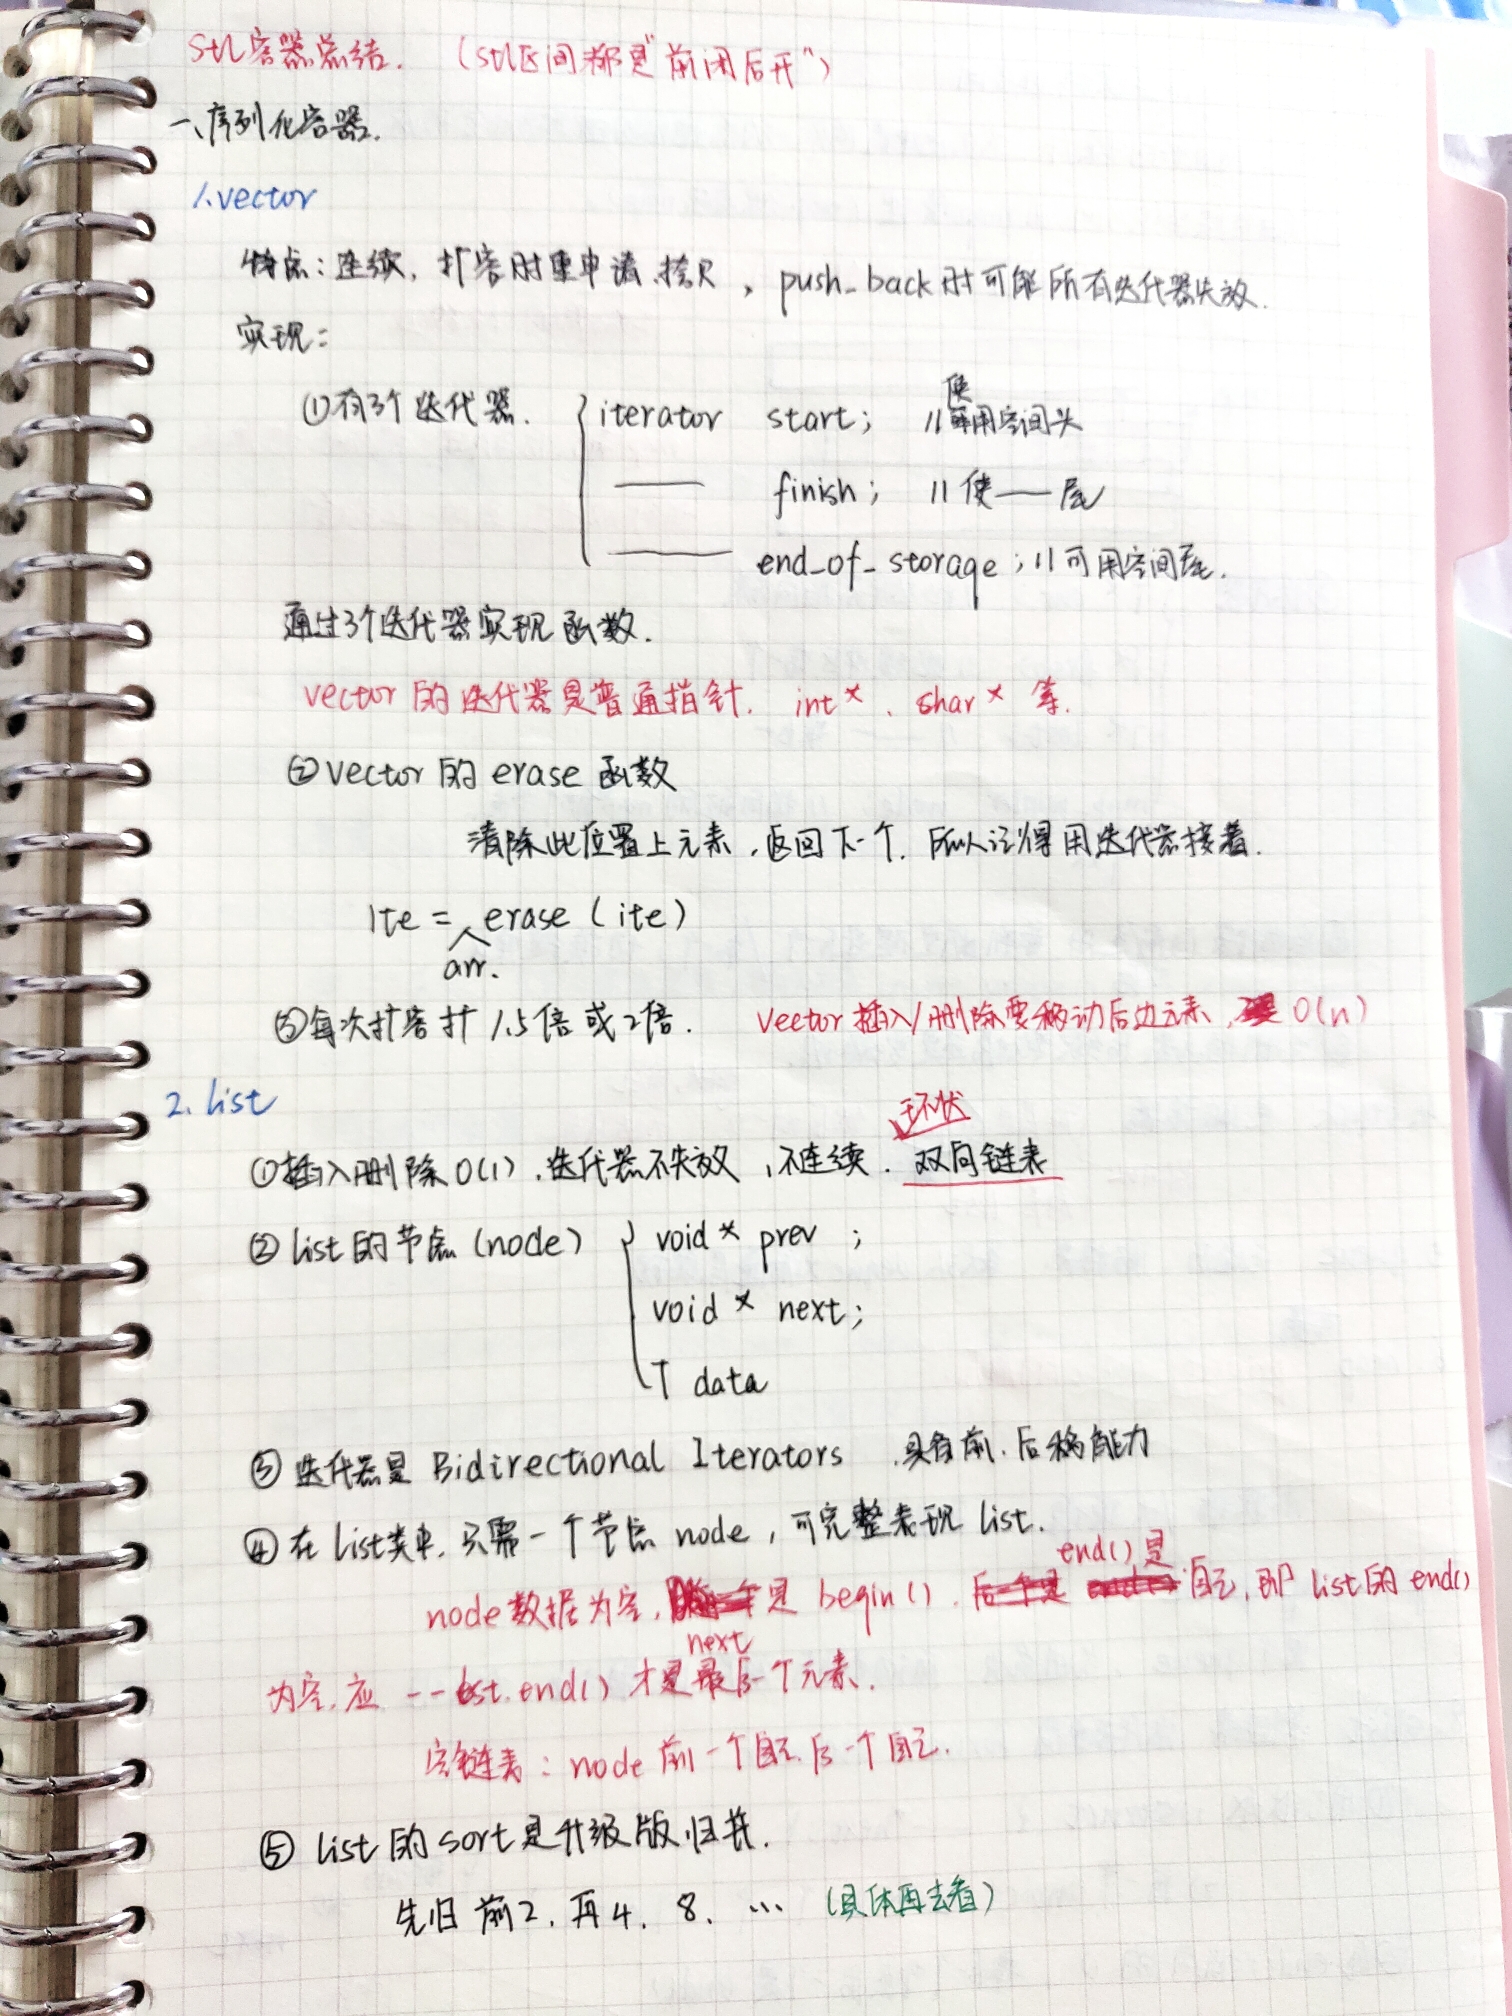 stl容器总结. (stl区间都是"前闭后开")
一、序列化容器.
1.vector
特点:连续, 扩容时重申请、拷贝, push_back时可能所有迭代器失效.
实现:
①有3个迭代器. iterator start; //使用空间头
—— finish; //使——尾
—— end_of_storage; //可用空间尾.
通过3个迭代器实现函数.
vector的迭代器是普通指针. int*、char*等.
②vector的erase函数
清除此位置上元素,返回下一个. 所以记得用迭代器接着.
ite = arr.erase(ite)
③每次扩容扩1.5倍或2倍. vector插入/删除要移动后边元素, O(n)
2. list
①插入删除O(1),迭代器不失效,不连续. 环状双向链表
②list的节点(node) void* prev;
void* next;
T data
③迭代器是Bidirectional Iterators,具有前、后移能力
④在list类中,只需一个节点node,可完整表现list.
node数据为空, next是begin(). end()是自己,即list的end()
为空,应--lst.end()才是最后一个元素.
空链表:node前一个自己后一个自己.
⑤list的sort是升级版归并.
先归前2,再4, 8, … (具体再去看)